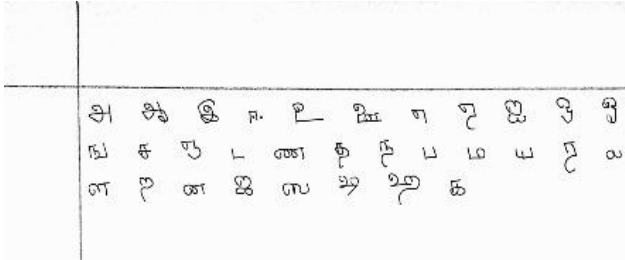 அ ஆ இ ஈ உ ஊ எ ஏ ஐ ஒ ஓ
ங ச ஞ ட ண த ந ப ம ய ர ல
ள ற ன ஜ ஸ ஷ ஹ க